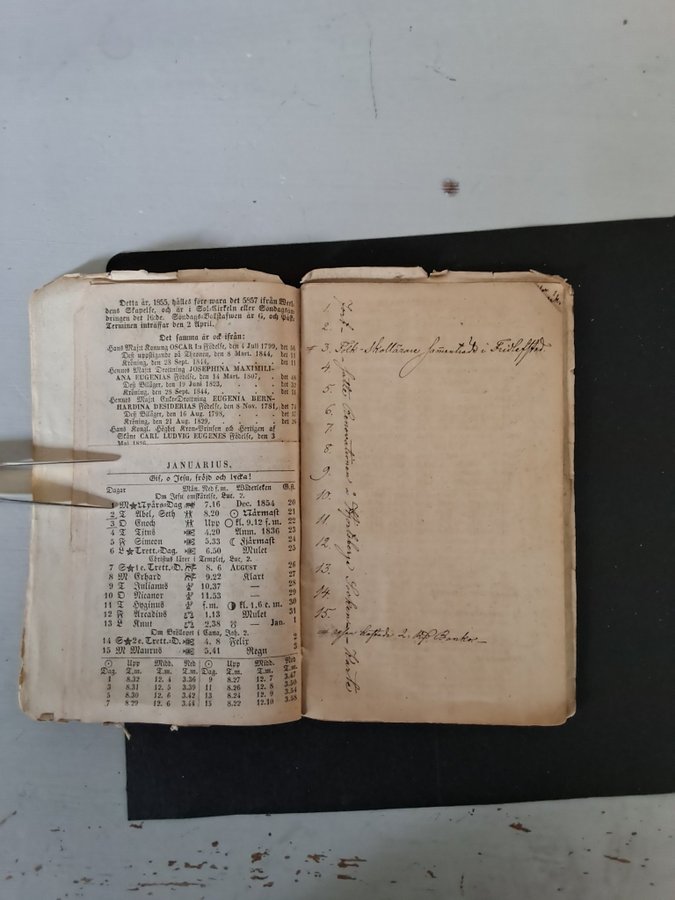 Detta år, 1855, hålles före wara det 5857 ifrån Werl-
dens Skapelse, och är i Sol-Cirkeln eller Söndags-
bringen det 16:de. Söndags-Bokstafwen är G, och Påsk-
Terminen inträffar den 2 April.
Det samma är ock ifrån:
Hans Maj:t Konung OSCAR I:s Födelse, den 4 Juli 1799, det
Dess uppstigande på Thronen, den 8 Mart. 1844,
Kröning, den 28 Sept. 1844,
Hennes Maj:t Drottning JOSEPHINA MAXIMILI-
ANA EUGENIAS Födelse, den 14 Mart. 1807,
Dess Biläger, den 19 Juni 1823,
Kröning, den 28 Sept. 1844,
Hennes Maj:t Enke-Drottning EUGENIA BERN-
HARDINA DESIDERIAS Födelse, den 8 Nov. 1781, det
Dess Biläger, den 16 Aug. 1798,
Kröning, den 21 Aug. 1829,
Hans Kongl. Höghet Kron-Prinsen och Hertigen af
Skåne CARL LUDVIG EUGENES Födelse, den 3
Maj 1826
JANUARIUS.
Gif, o Jesu, fröjd och lycka!
Dagar Mån. Ned f.m. Wäderleken G.st
Om Jesu omskärelse, Luc. 2.
1 M Nyårs-Dag 7.16 Dec. 1854 20
2 T Abel, Seth 8.20 Närmast 21
3 O Enoch Upp kl. 9.12 f.m. 22
4 T Titus 4.20 Anm. 1836 23
5 F Simeon 5.33 Fjärmast 24
6 L Trett.-Dag. 6.50 Mulet 25
Christus lärer i Templet, Luc. 2.
7 S 1 e. Trett.-D. 8. 6 August 26
8 M Erhard 9.22 Klart 27
9 T Julianus 10.37 — 28
10 O Nicanor 11.53 — 29
11 T Hyginus f.m. kl. 1.6 e.m. 30
12 F Arcadius 1.13 Mulet 31
13 L Knut 2.38 — Jan. 1
Om Bröllopet i Cana, Joh. 2.
14 S 2 e. Trett.-D. 4. 8 Felix 2
15 M Maurus 5.41 Regn 3
Upp Midd. Ned Upp Midd. Ned
Dag. T.m. T.m. T.m. Dag. T.m. T.m. T.m.
1 8.32 12. 4 3.36 9 8.27 12. 7 3.47
3 8.31 12. 5 3.39 11 8.26 12. 8 3.50
5 8.30 12. 6 3.42 13 8.24 12. 9 3.54
7 8.29 12. 6 3.44 15 8.22 12.10 3.58
1.
2.
3. Folk-Skollärare
i
4.
5.
6.
7.
8.
9.
10.
11
12.
13.
14.
15.